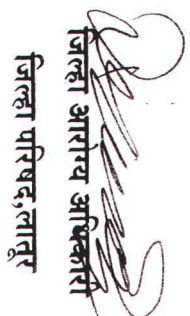 जिल्हा आरोग्य अधिकारी
जिल्हा परिषद,लातूर